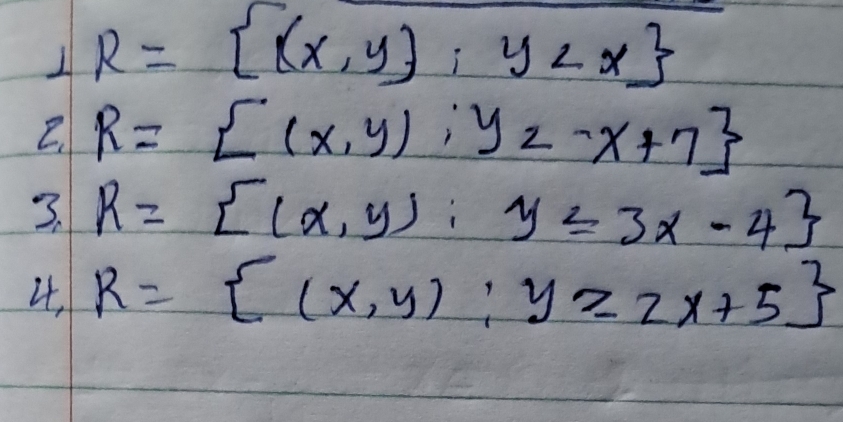 1. R = {(x,y) : y < x}
2. R = {(x,y) : y > -x+7}
3. R = {(x,y) : y ≤ 3x - 4}
4. R = {(x,y) : y ≥ 2x+5}